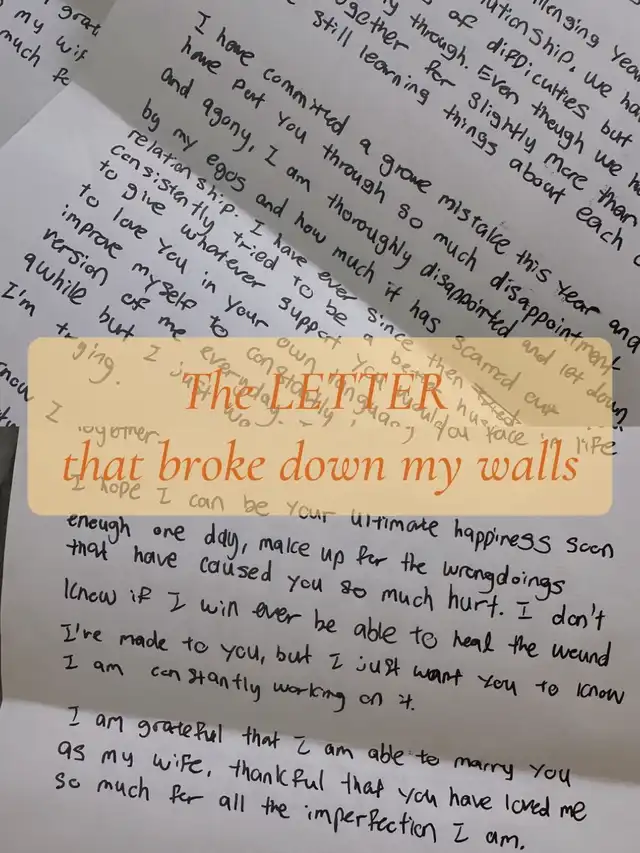 grat
my wif
much fe
llenging Year
lationship, we ha
of difficulties but
y through. Even though we h
ogether for slightly more than
still learning things about each o
I have committed a grave mistake this year and
have put you through so much disappointment
and agony, I am thoroughly disappointed and let down
by my egos and how much it has scarred our
relationship. I have ever since then
consistently tried to be a better husband
to give whatever support you would face in life
to love you in your own language,
improve myself to constantly
version of me everyday.
awhile but I just
I'm trying.
The LETTER
that broke down my walls
now I
together
I hope I can be your ultimate happiness soon
enough one day, make up for the wrongdoings
that have caused you so much hurt. I don't
know if I will ever be able to heal the wound
I've made to you, but I just want you to know
I am constantly working on it.
I am grateful that I am able to marry you
as my wife, thankful that you have loved me
so much for all the imperfection I am.